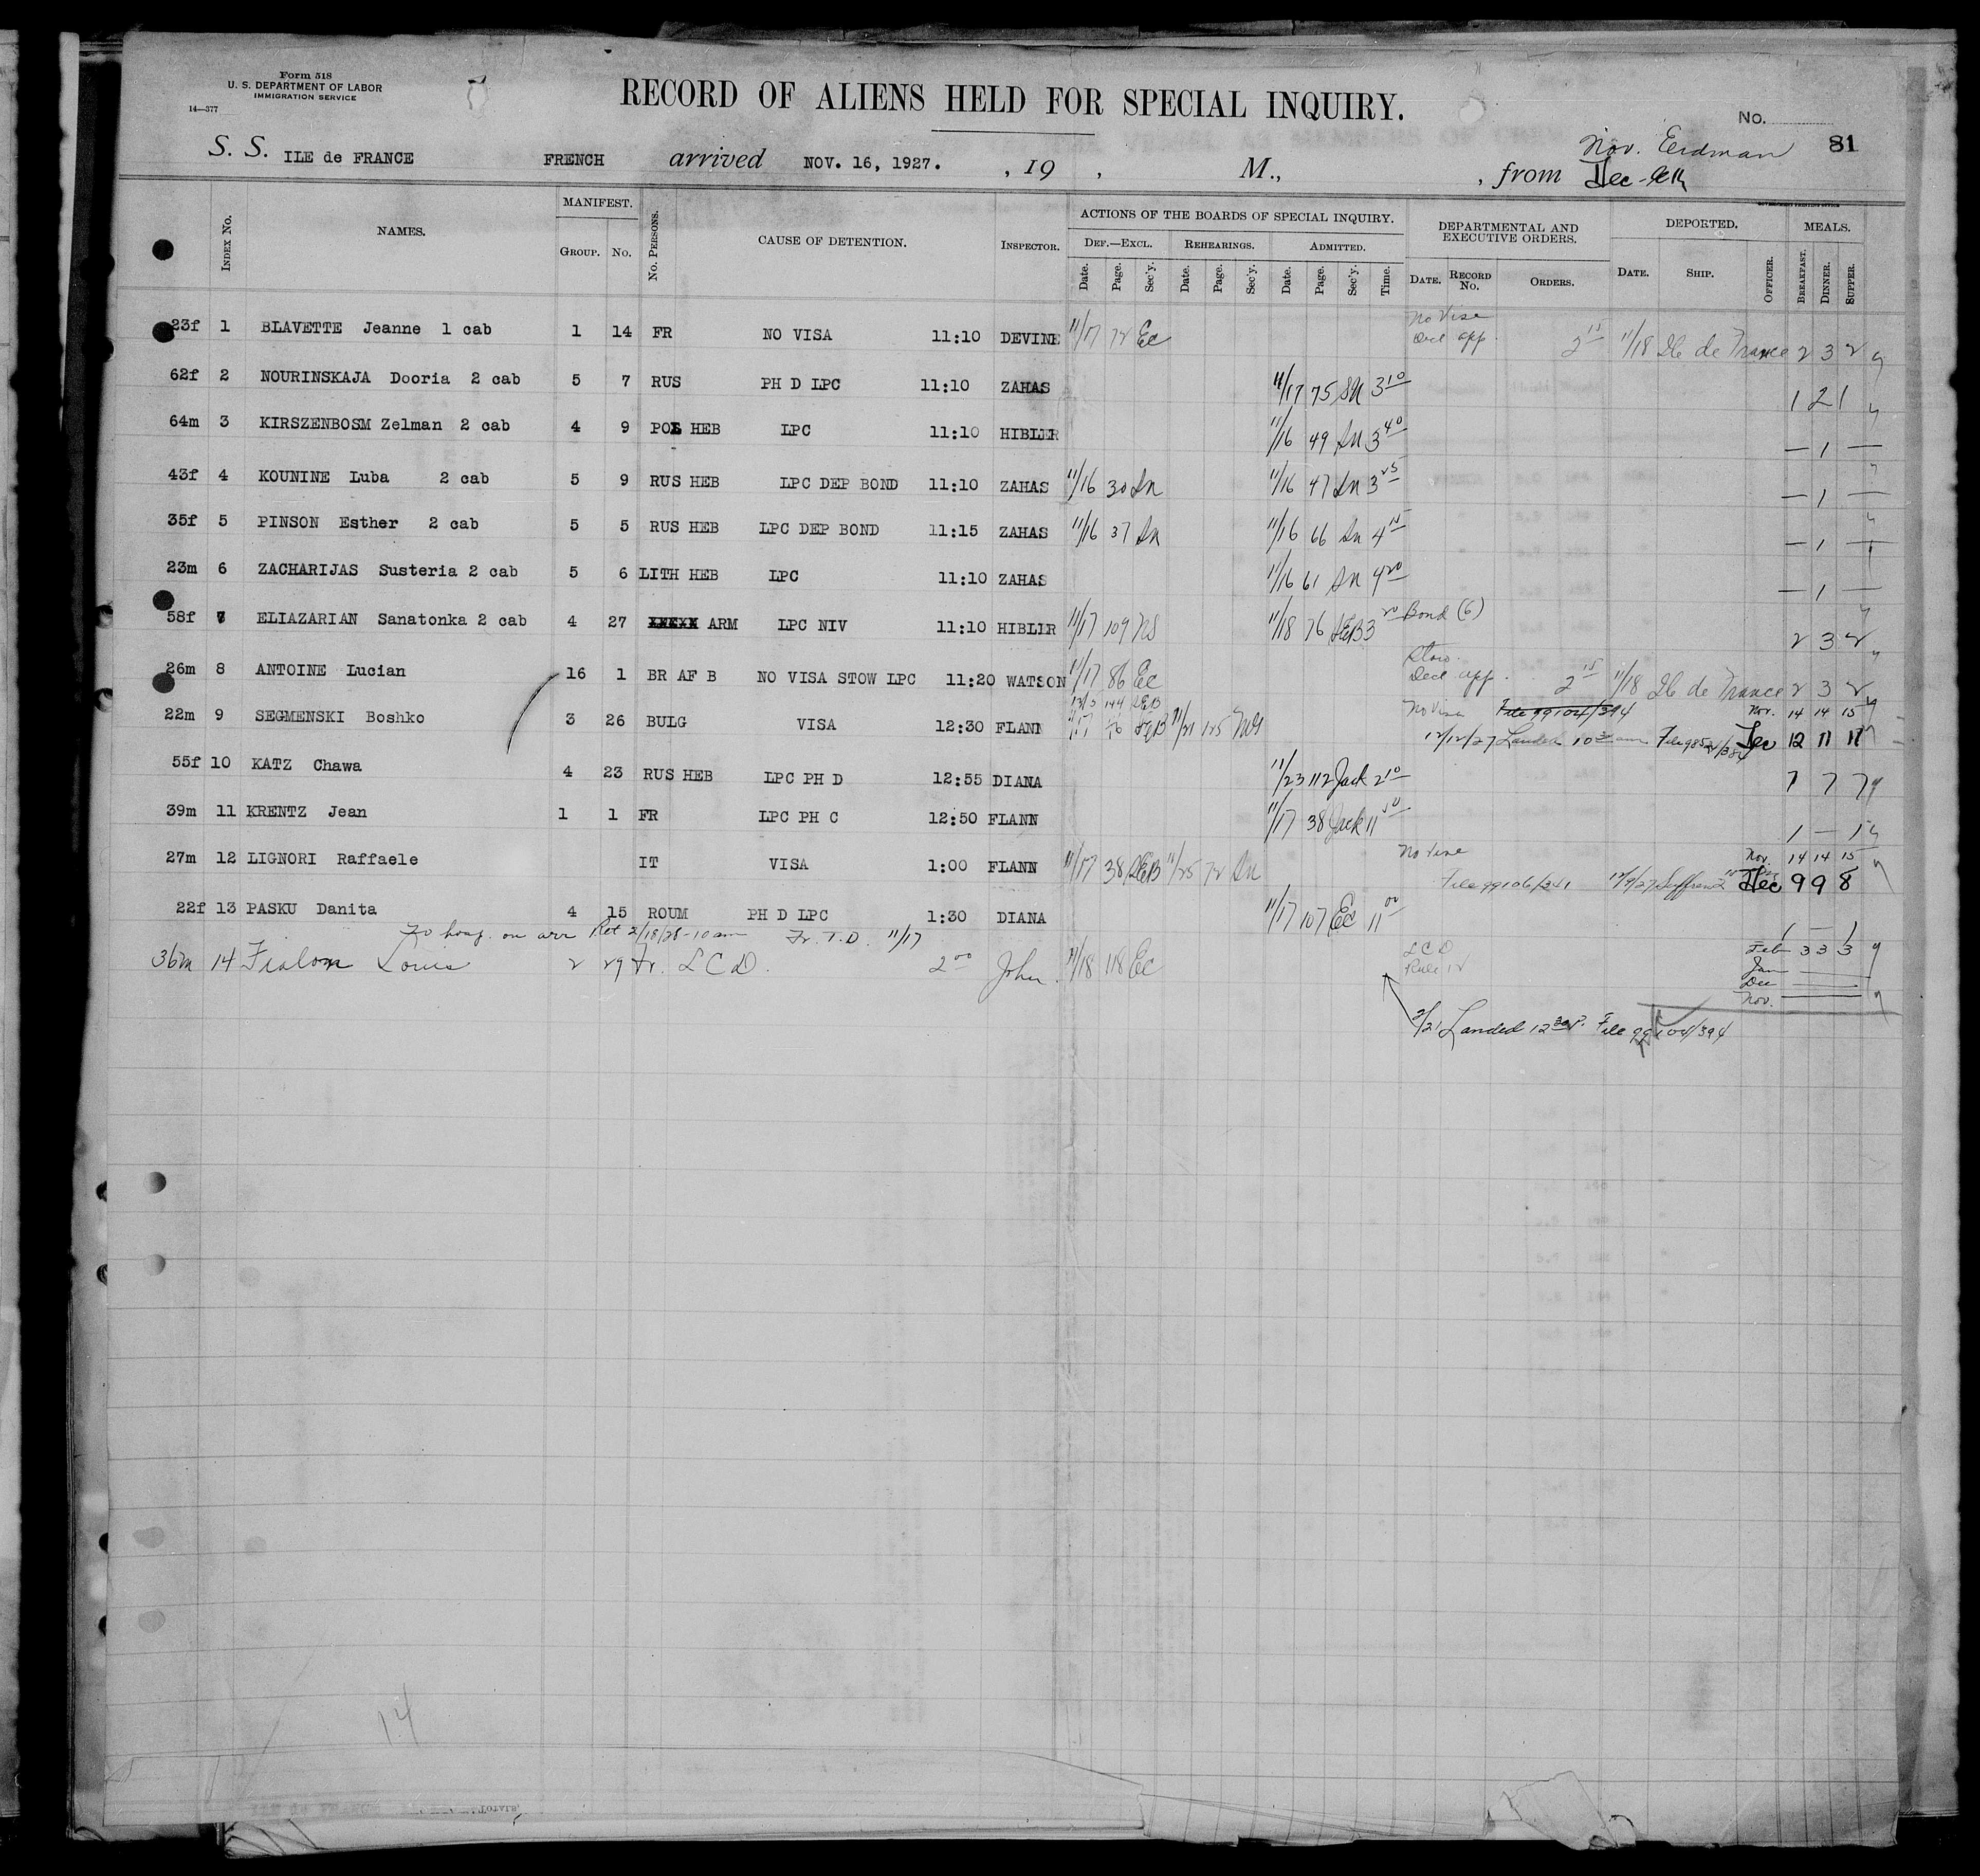 Form 518
U. S. DEPARTMENT OF LABOR
IMMIGRATION SERVICE
14—377
RECORD OF ALIENS HELD FOR SPECIAL INQUIRY.
No. 81
S. S. ILE de FRANCE FRENCH arrived NOV. 16, 1927. , 19 , M., , from Nov. Erdman
Dec
INDEX No. NAMES. MANIFEST. GROUP. No. No. PERSONS. CAUSE OF DETENTION. INSPECTOR. ACTIONS OF THE BOARDS OF SPECIAL INQUIRY. DEF.—EXCL. REHEARINGS. ADMITTED. Date. Page. Sec'y. Date. Page. Sec'y. Date. Page. Sec'y. Time. DEPARTMENTAL AND EXECUTIVE ORDERS. DATE. RECORD No. ORDERS. DEPORTED. DATE. SHIP. OFFICER. MEALS. BREAKFAST. DINNER. SUPPER.
No Visa
23f 1 BLAVETTE Jeanne 1 cab 1 14 FR NO VISA 11:10 DEVINE 11/17 72 Ec app. 2 15 11/18 Ile de France 2 3 2
62f 2 NOURINSKAJA Dooria 2 cab 5 7 RUS PH D LPC 11:10 ZAHAS 11/17 75 Sn 3 10 1 2 1
64m 3 KIRSZENBOSM Zelman 2 cab 4 9 POL HEB LPC 11:10 HIBLER 11/16 49 Sn 3 40 — 1 —
43f 4 KOUNINE Luba 2 cab 5 9 RUS HEB LPC DEP BOND 11:10 ZAHAS 11/16 30 Sn 11/16 47 Sn 3 25 — 1 —
35f 5 PINSON Esther 2 cab 5 5 RUS HEB LPC DEP BOND 11:15 ZAHAS 11/16 37 Sn 11/16 66 Sn 4 15 — 1 —
23m 6 ZACHARIJAS Susteria 2 cab 5 6 LITH HEB LPC 11:10 ZAHAS 11/16 61 Sn 4 20 — 1 —
58f 7 ELIAZARIAN Sanatonka 2 cab 4 27 ARM LPC NIV 11:10 HIBLER 11/17 109 NS 11/18 76 SEB 3 20 Bond (6) 2 3 2
Stow.
26m 8 ANTOINE Lucian 16 1 BR AF B NO VISA STOW LPC 11:20 WATSON 11/17 86 Ec Decl app. 2 15 11/18 Ile de France 2 3 2
12/3 144 SEB No Visa File 99104/394 Nov. 14 14 15
22m 9 SEGMENSKI Boshko 3 26 BULG VISA 12:30 FLANN 11/17 SEB 11/21 125 12/12/27 Landed 10 30 am Dec 12 11 11
55f 10 KATZ Chawa 4 23 RUS HEB LPC PH D 12:55 DIANA 11/23 112 Jack 2 10 7 7 7
39m 11 KRENTZ Jean 1 1 FR LPC PH C 12:50 FLANN 11/17 38 Jack 11 50 1 — 1
No Visa Nov. 14 14 15
27m 12 LIGNORI Raffaele IT VISA 1:00 FLANN 11/17 38 SEB 11/25 72 Sn File 99106/341 12/9/27 Suffren Dec 9 9 8
22f 13 PASKU Danita 4 15 ROUM PH D LPC 1:30 DIANA 11/17 107 Ec 11 00 1 — 1
To hosp. on arr Ret 2/18/28-10 am Fr. T.D. 11/17
36m 14 Fialon Louis 2 29 Fr. L C D. 2 00 John. 11/18 118 Ec L C D Feb 3 3 3
Rule 12 Jan
Dec
Nov.
2/21 Landed 12 30 P. File 99104/394
14
TOTALS.